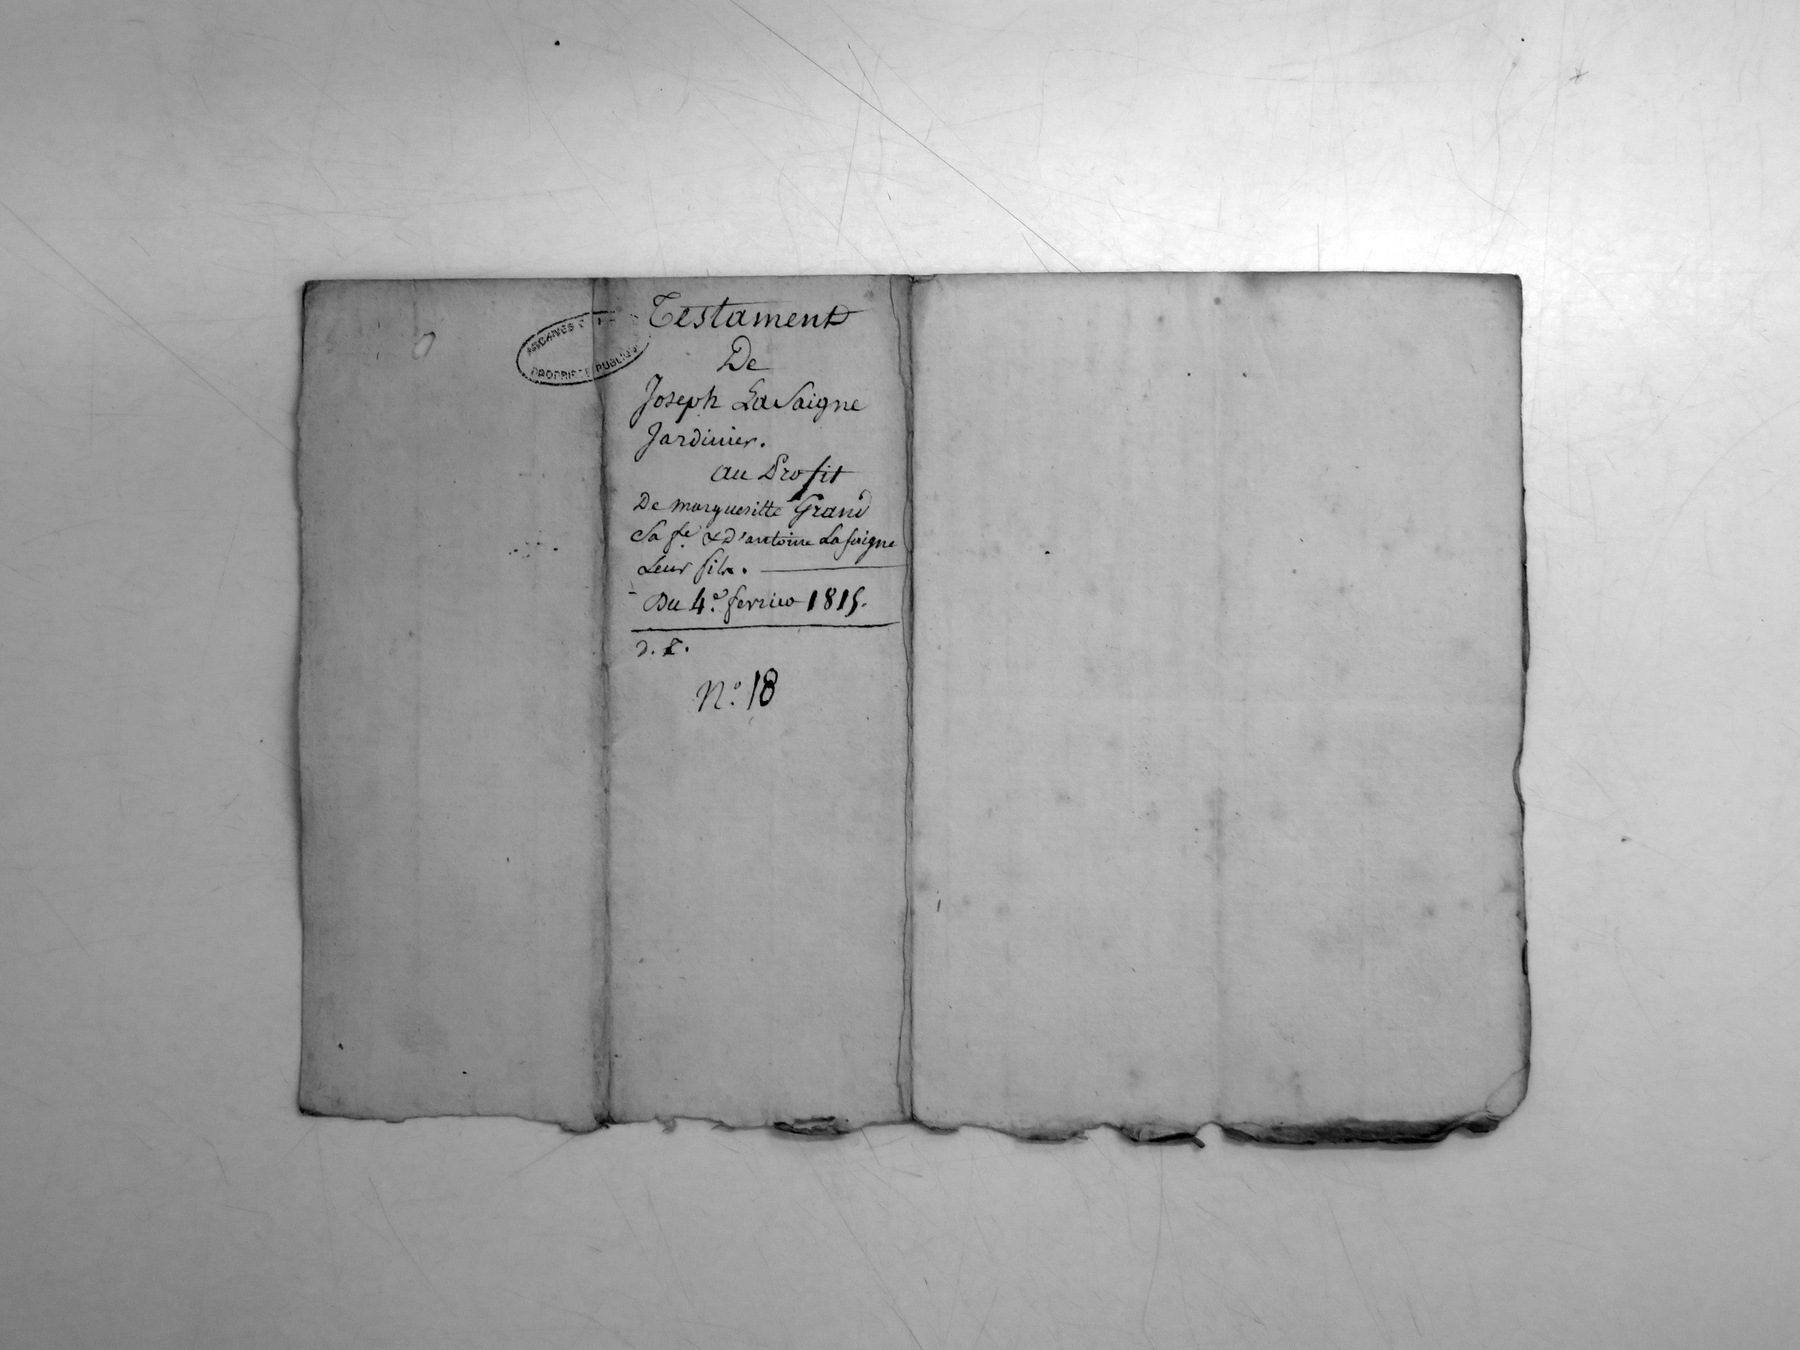 Testament
De
Joseph LaSaigne
Jardinier.
au Profit
De margueritte Grand
Sa fe. & D'antoine Lasaigne
Leur fils.
Du 4e. fevrier 1815.
d. t.
N.o 18
ARCHIVES
PROPRIETE PUBLIQUE